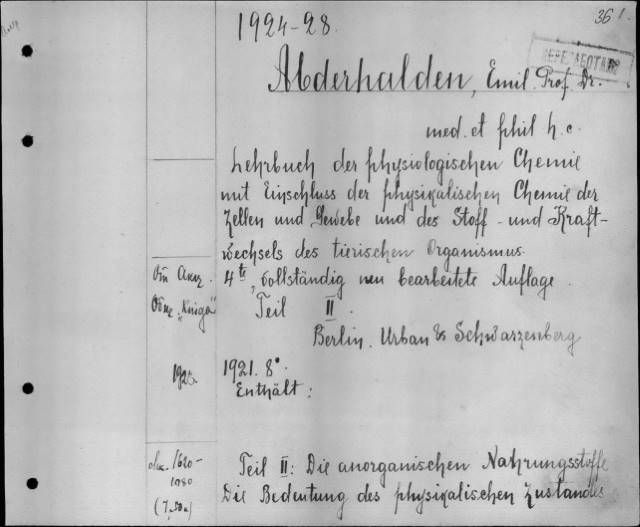 1924-28.
36 1.
Abderhalden, Emil. Prof. Dr.
med. et phil h.c.
Lehrbuch der physiologischen Chemie
mit Einschluss der physikalischen Chemie der
Zellen und Gewebe und des Stoff- und Kraft-
wechsels des tierischen Organismus.
4te, vollständig neu bearbeitete Auflage.
Teil II.
Berlin. Urban & Schwarzenberg
1921. 8°.
Enthält:
Teil II: Die anorganischen Nahrungsstoffe
Die Bedeutung des physikalischen Zustandes
От
"Kniga"
192
1620-